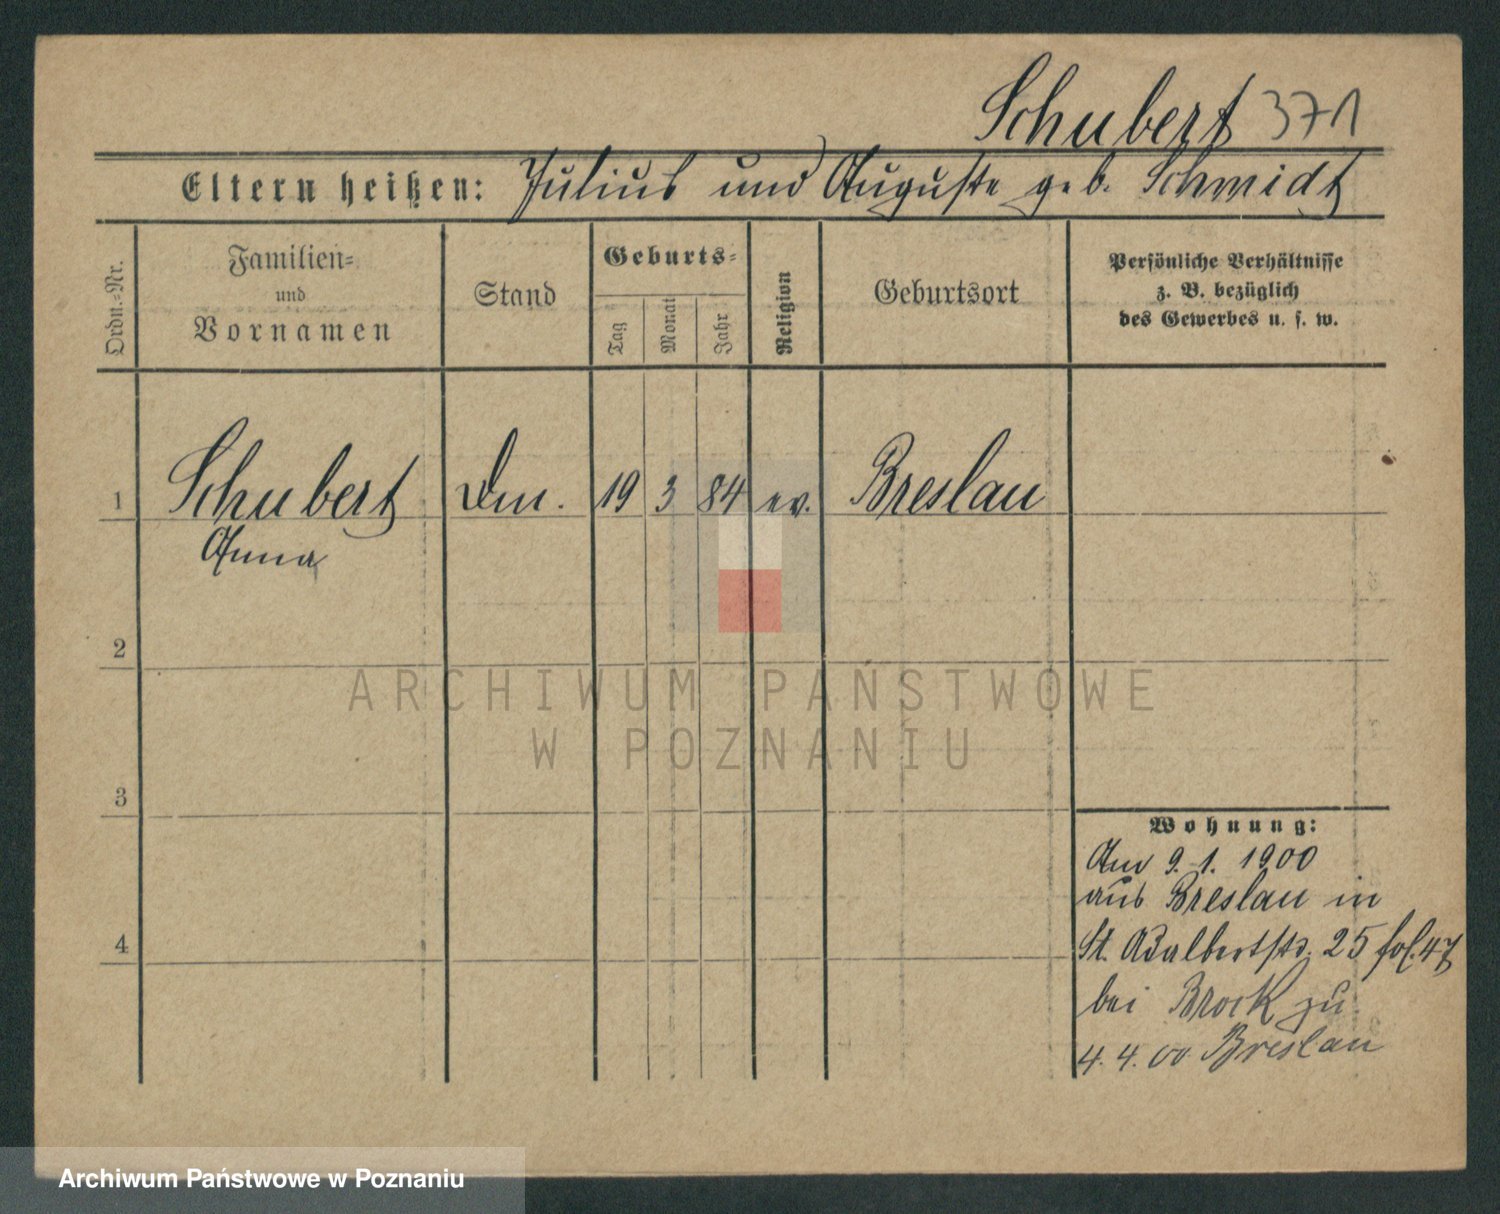 Schubert 371
Eltern heißen: Julius und Auguste geb. Schmidt
Ordn.=Nr.
Familien=
und
Vornamen
Stand
Geburts=
Tag
Monat
Jahr
Religion
Geburtsort
Persönliche Verhältnisse
z. B. bezüglich
des Gewerbes u. s. w.
1 Schubert 19 3 84 ev. Breslau
Anna
2
3
4
Wohnung:
Am 9. 1. 1900
aus Breslau in
St. Adalbertstr. 25 fol. 47
bei Brock zu
4. 4. 00 Breslau
ARCHIWUM PAŃSTWOWE
W POZNANIU
Archiwum Państwowe w Poznaniu